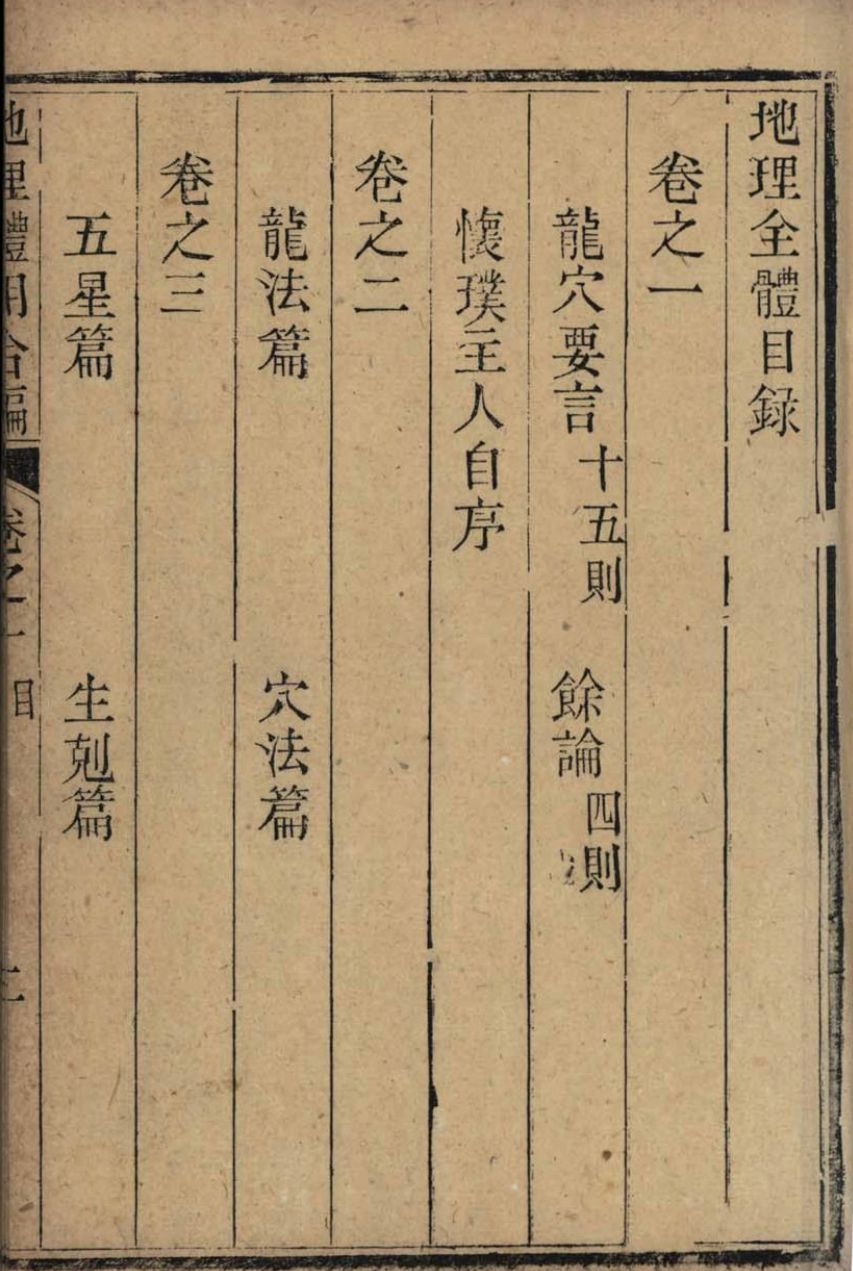 地理全體目録
卷之一
龍穴要言 十五則 餘論 四則
懷璞主人自序
卷之二
龍法篇 穴法篇
卷之三
五星篇 生剋篇
地理體用合編 卷之一 目 二